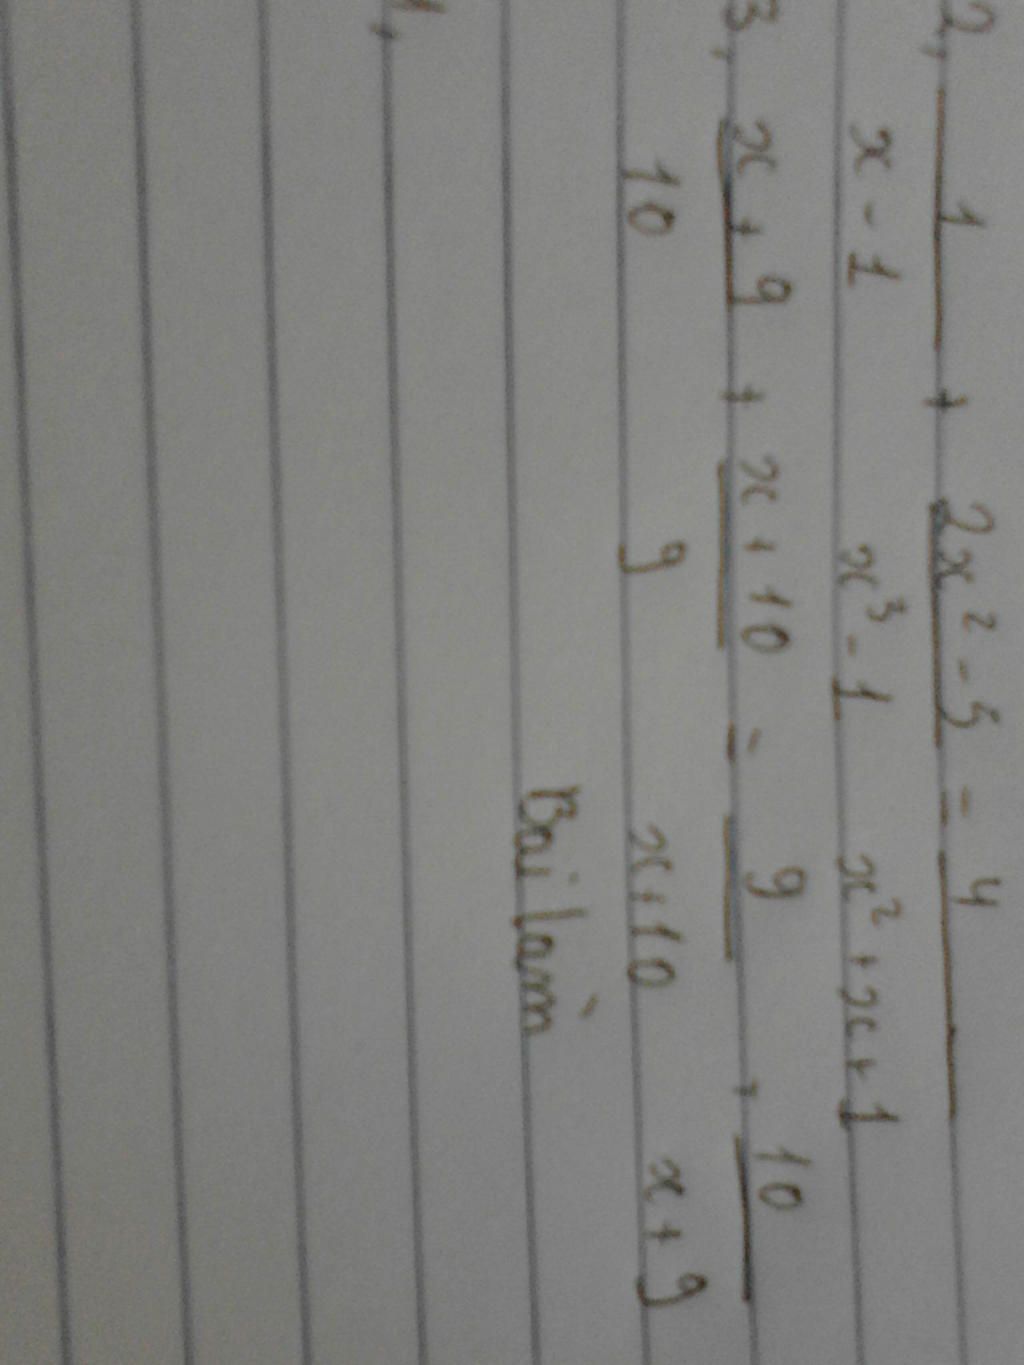 2, 1/(x - 1) + (2x² - 5)/(x³ - 1) = 4/(x² + x + 1)
3, (x + 9)/10 + (x + 10)/9 = 9/(x + 10) + 10/(x + 9)
Bài làm